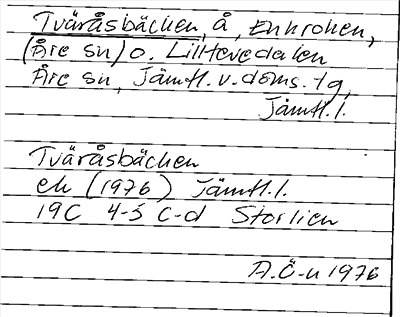 Tväråsbäcken, å, Enkroken,
(Åre sn) o. Lillhevedalen
Åre sn, Jämtl. v. doms. tg,
Jämtl. l.
Tväråsbäcken
ek (1976) Jämtl. l.
19C 4-5 c-d Storlien
A.Ö-n 1976